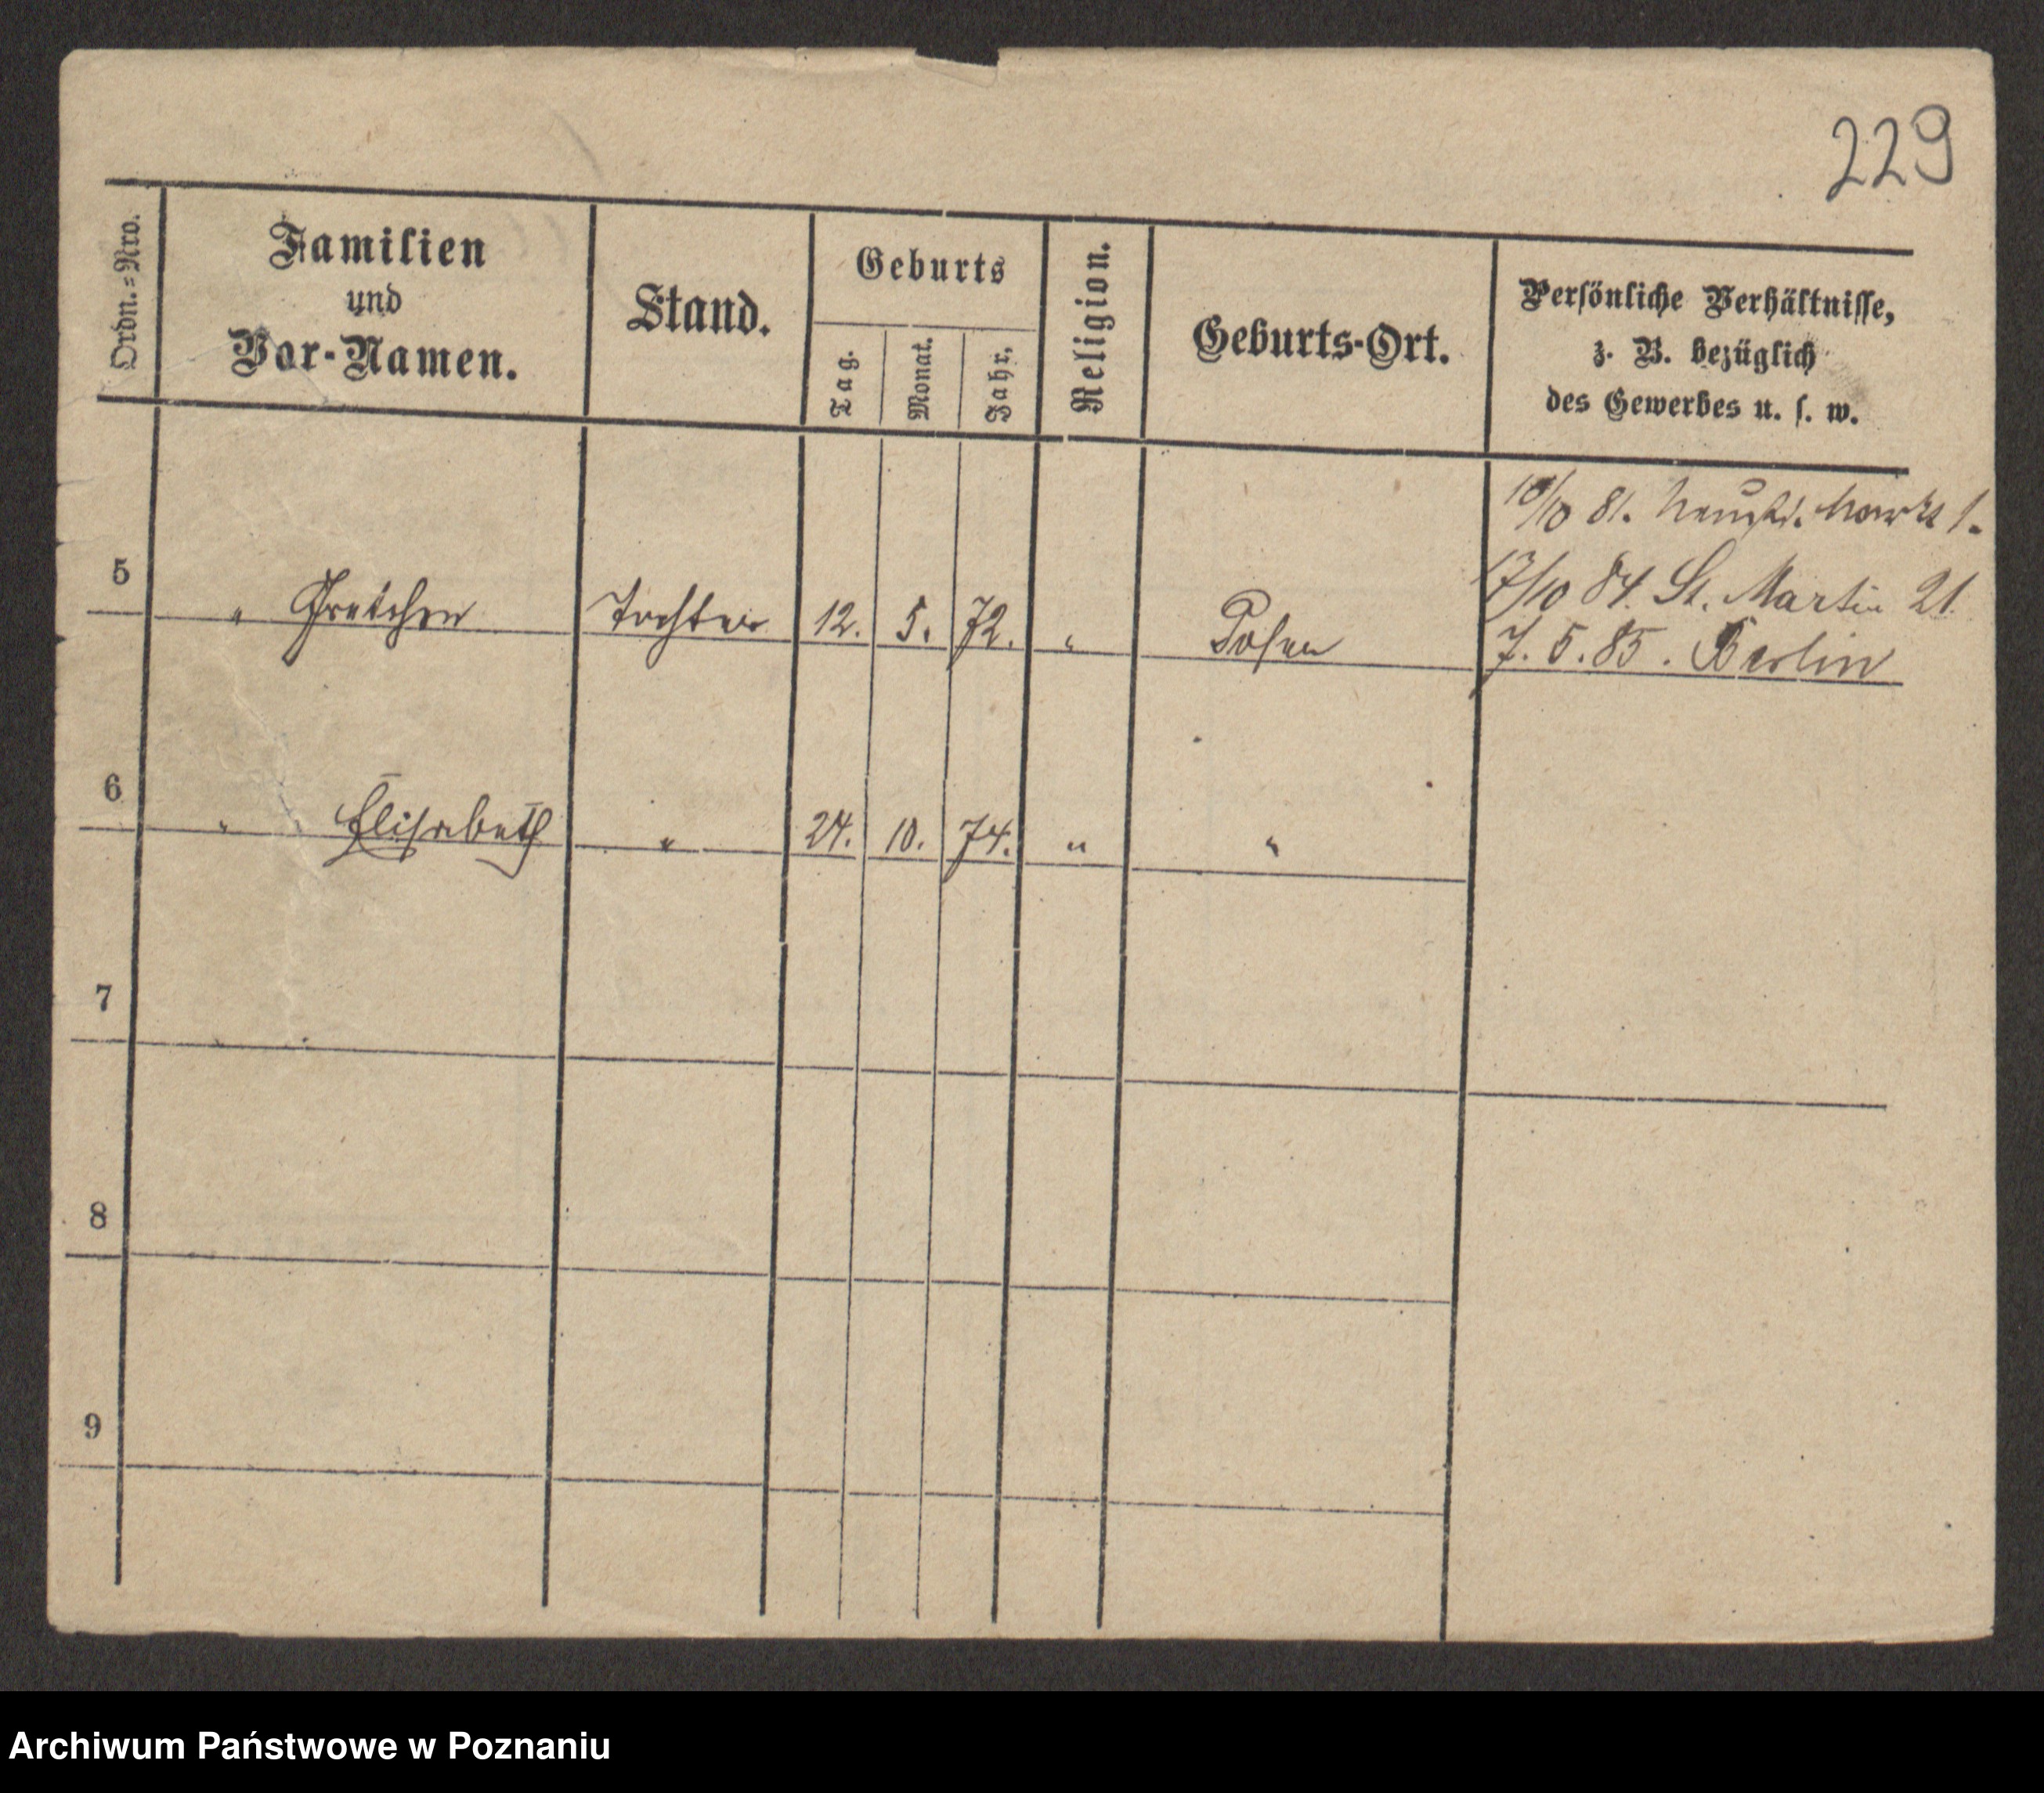 229
Ordn.=Nro.
Familien
und
Vor-Namen.
Stand.
Geburts
Tag.
Monat.
Jahr.
Religion.
Geburts-Ort.
Persönliche Verhältnisse,
z. B. bezüglich
des Gewerbes u. s. w.
10/10 81. Neust. Markt 1.
17/10 84. St. Martin 21.
7. 5. 85. Berlin
5 " Gretchen Tochter 12. 5. 72. " Posen
6 " Elisabeth " 24. 10. 74. " "
7
8
9
Archiwum Państwowe w Poznaniu